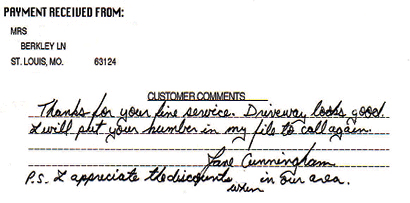 PAYMENT RECEIVED FROM:
MRS
BERKLEY LN
ST. LOUIS, MO. 63124
CUSTOMER COMMENTS
Thanks for your fine service. Driveway looks good.
I will put your number in my file to call again.
Jane Cunningham
P.S. I appreciate the discounts when in our area.